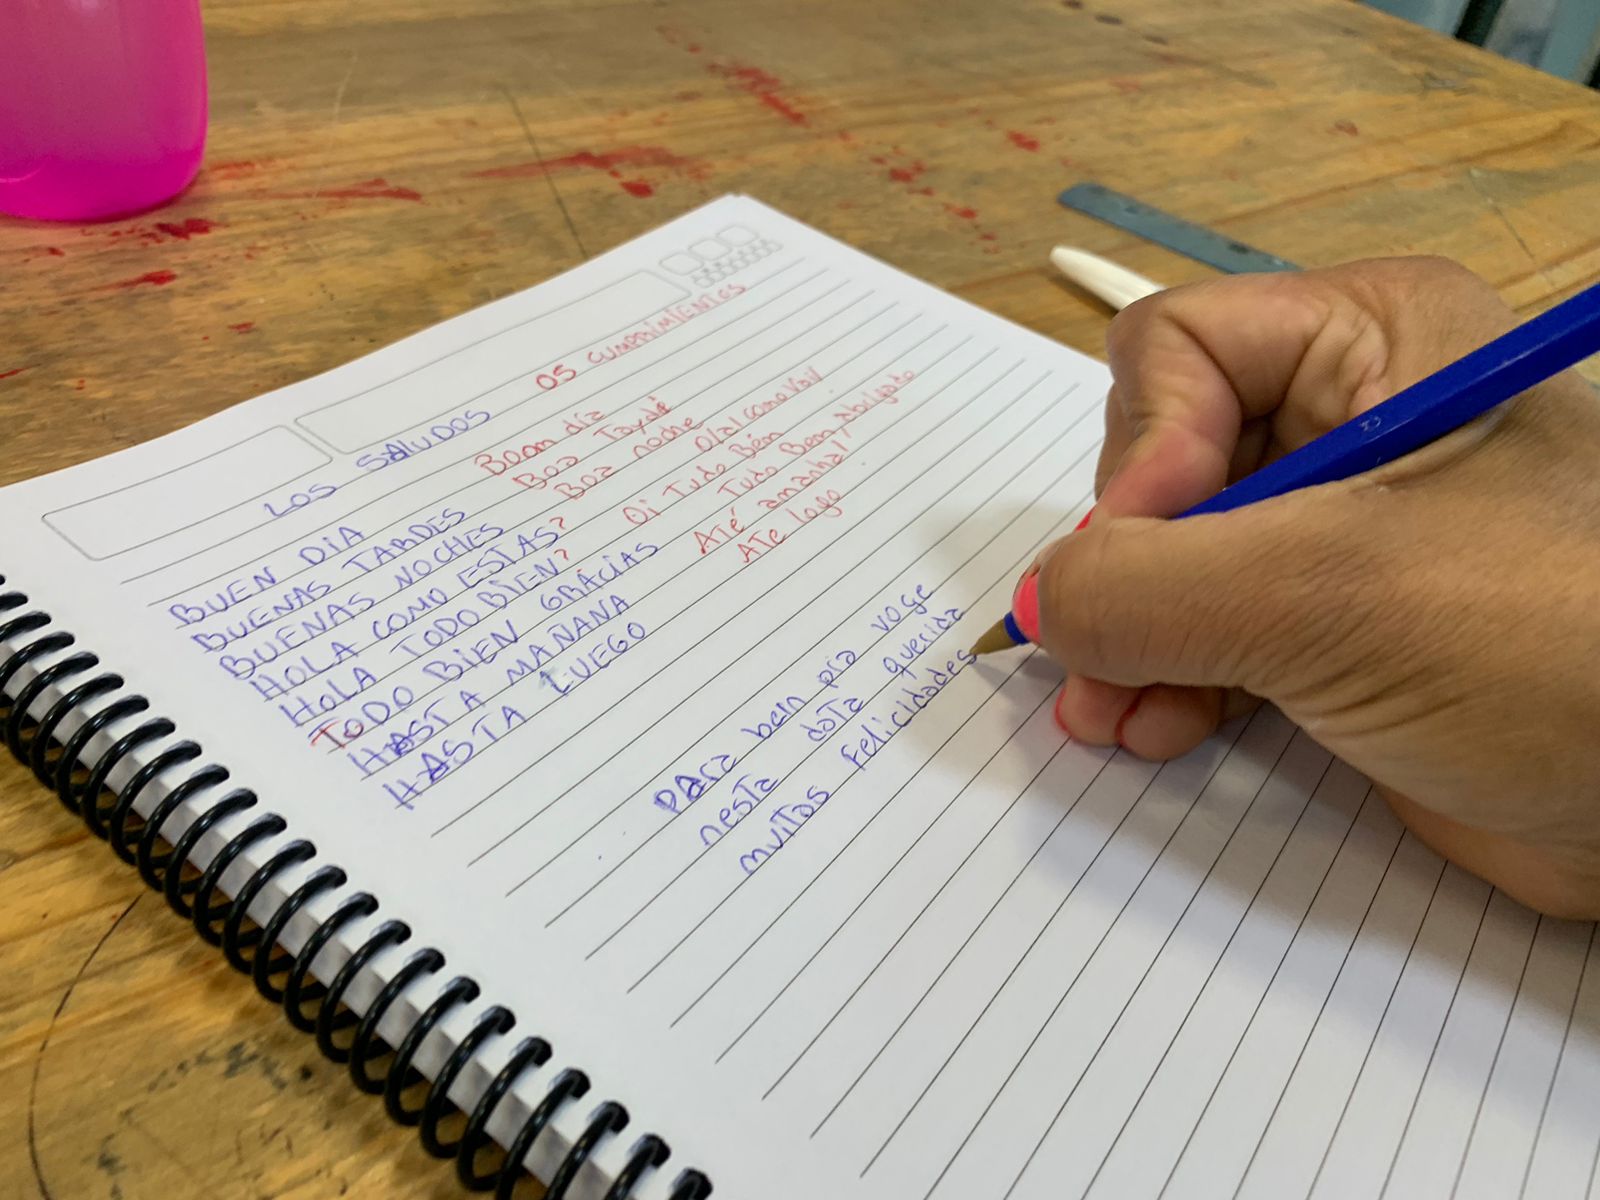 LOS SALUDOS OS CUMPRIMIENTOS
BUEN DIA Boom día
BUENAS TARDES Boa Taydé
BUENAS NOCHES Boa noche
HOLA COMO ESTAS? Ola! Como Vai
HOLA TODO BIEN? Oi Tudo Bén
TODO BIEN GRACIAS Tudo Bem abligado
HASTA MAÑANA ATé amanha!
HASTA LUEGO ATe logo
PAra bem pra voge
nesta data querida
muitas Felicidades